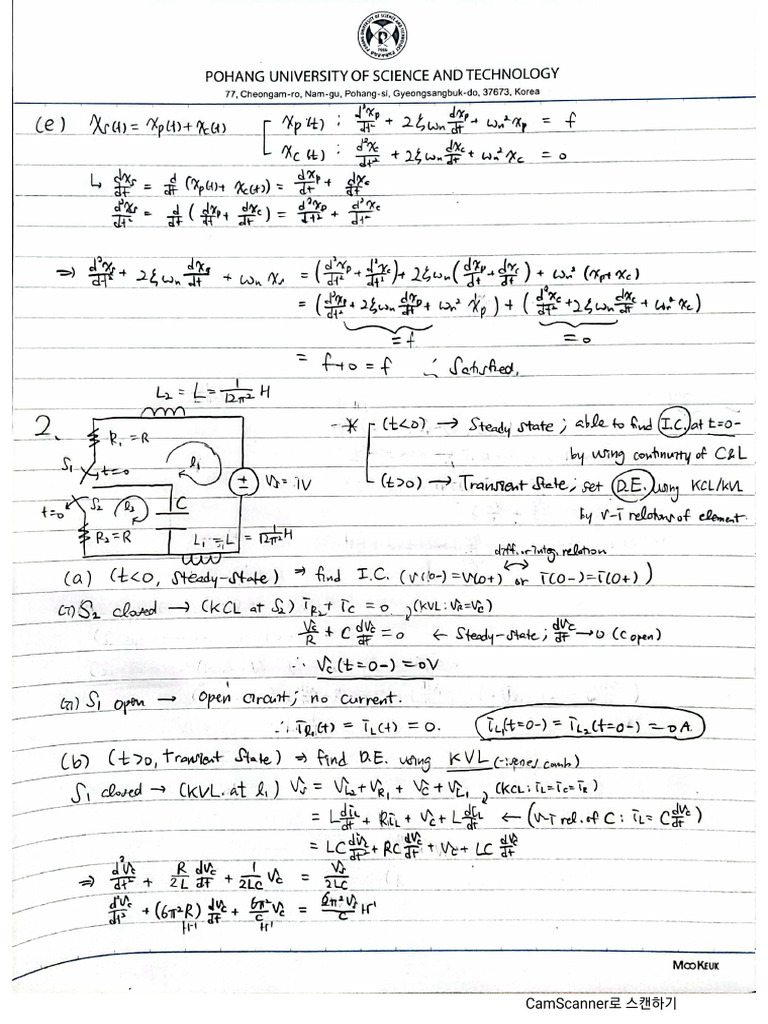 POHANG UNIVERSITY OF SCIENCE AND TECHNOLOGY
77, Cheongam-ro, Nam-gu, Pohang-si, Gyeongsangbuk-do, 37673, Korea
(e) x_s(t) = x_p(t) + x_c(t) [ x_p(t) : d²x_p/dt² + 2ξω_n dx_p/dt + ω_n² x_p = f
x_c(t) : d²x_c/dt² + 2ξω_n dx_c/dt + ω_n² x_c = 0
↳ dx_s/dt = d/dt (x_p(t) + x_c(t)) = dx_p/dt + dx_c/dt
d²x_s/dt² = d/dt (dx_p/dt + dx_c/dt) = d²x_p/dt² + d²x_c/dt²
⇒ d²x_s/dt² + 2ξω_n dx_s/dt + ω_n x_s = (d²x_p/dt² + d²x_c/dt²) + 2ξω_n (dx_p/dt + dx_c/dt) + ω_n² (x_p + x_c)
= (d²x_p/dt² + 2ξω_n dx_p/dt + ω_n² x_p) + (d²x_c/dt² + 2ξω_n dx_c/dt + ω_n² x_c)
= f = 0
= f + 0 = f ∴ Satisfied.
2.
L₂ = L = 1/12π² H
R₁ = R
S₁ t=0
l₁
V_s = 1V
t=0 S₂ l₂ C
R₂ = R
L₁ = L = 1/12π² H
* [ (t<0) → Steady state ; able to find I.C. at t=0-
by using continuity of C&L
(t>0) → Transient state ; set D.E. using KCL/KVL
by v-i relations of element.
diff. or integ. relation
(a) (t<0, Steady-state) ⇒ find I.C. (v(0-) = v(0+) or i(0-) = i(0+))
(i) S₂ closed → (KCL at S₂) i_R₂ + i_C = 0 (KVL : V_R = V_C)
V_C/R + C dV_C/dt = 0 ← Steady-state ; dV_C/dt → 0 (C open)
∴ V_C(t=0-) = 0V
(ii) S₁ open → open circuit ; no current.
∴ i_R₁(t) = i_L(t) = 0. i_L₁(t=0-) = i_L₂(t=0-) = 0A.
(b) (t>0, Transient State) ⇒ find D.E. using KVL
S₁ closed → (KVL at l₁) V_s = V_L₂ + V_R₁ + V_C + V_L₁ (KCL : i_L = i_C = i_R)
= L di_L/dt + R i_L + V_C + L di_L/dt ← (v-i rel. of C : i_L = C dV_C/dt)
= LC dV_C/dt + RC dV_C/dt + V_C + LC dV_C/dt
⇒ d²V_C/dt² + R/2L dV_C/dt + 1/2LC V_C = V_s/2LC
d²V_C/dt² + (6π²R) dV_C/dt + 6π²/C V_C = 6π²V_s/C H⁻¹
H⁻¹ H⁻¹
MOOKEUK
CamScanner로 스캔하기